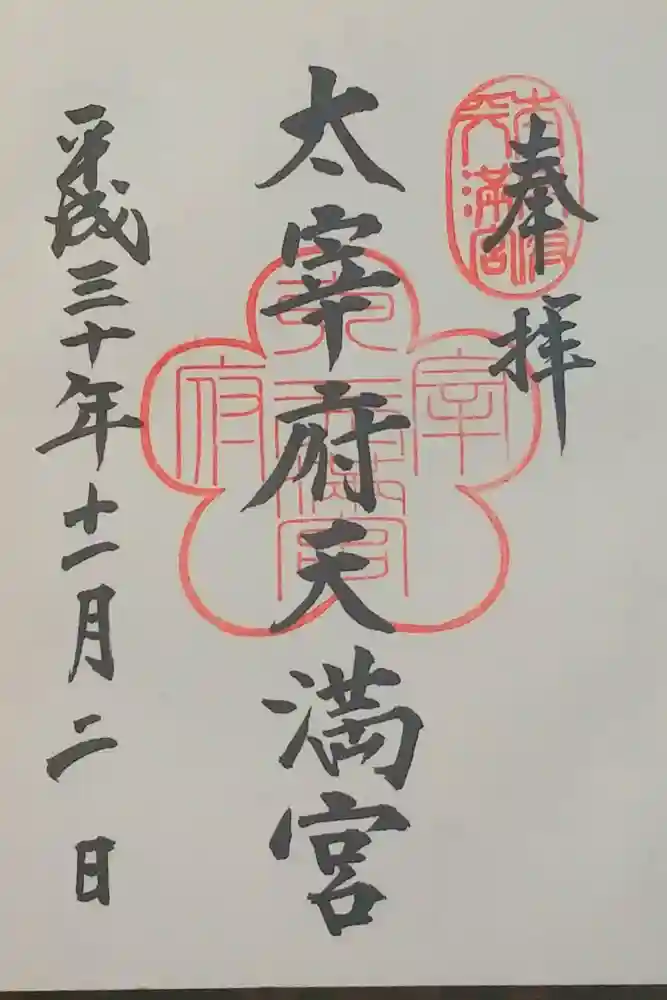 奉拝
太宰府天満宮
平成三十年十一月二日
太宰府
天満宮